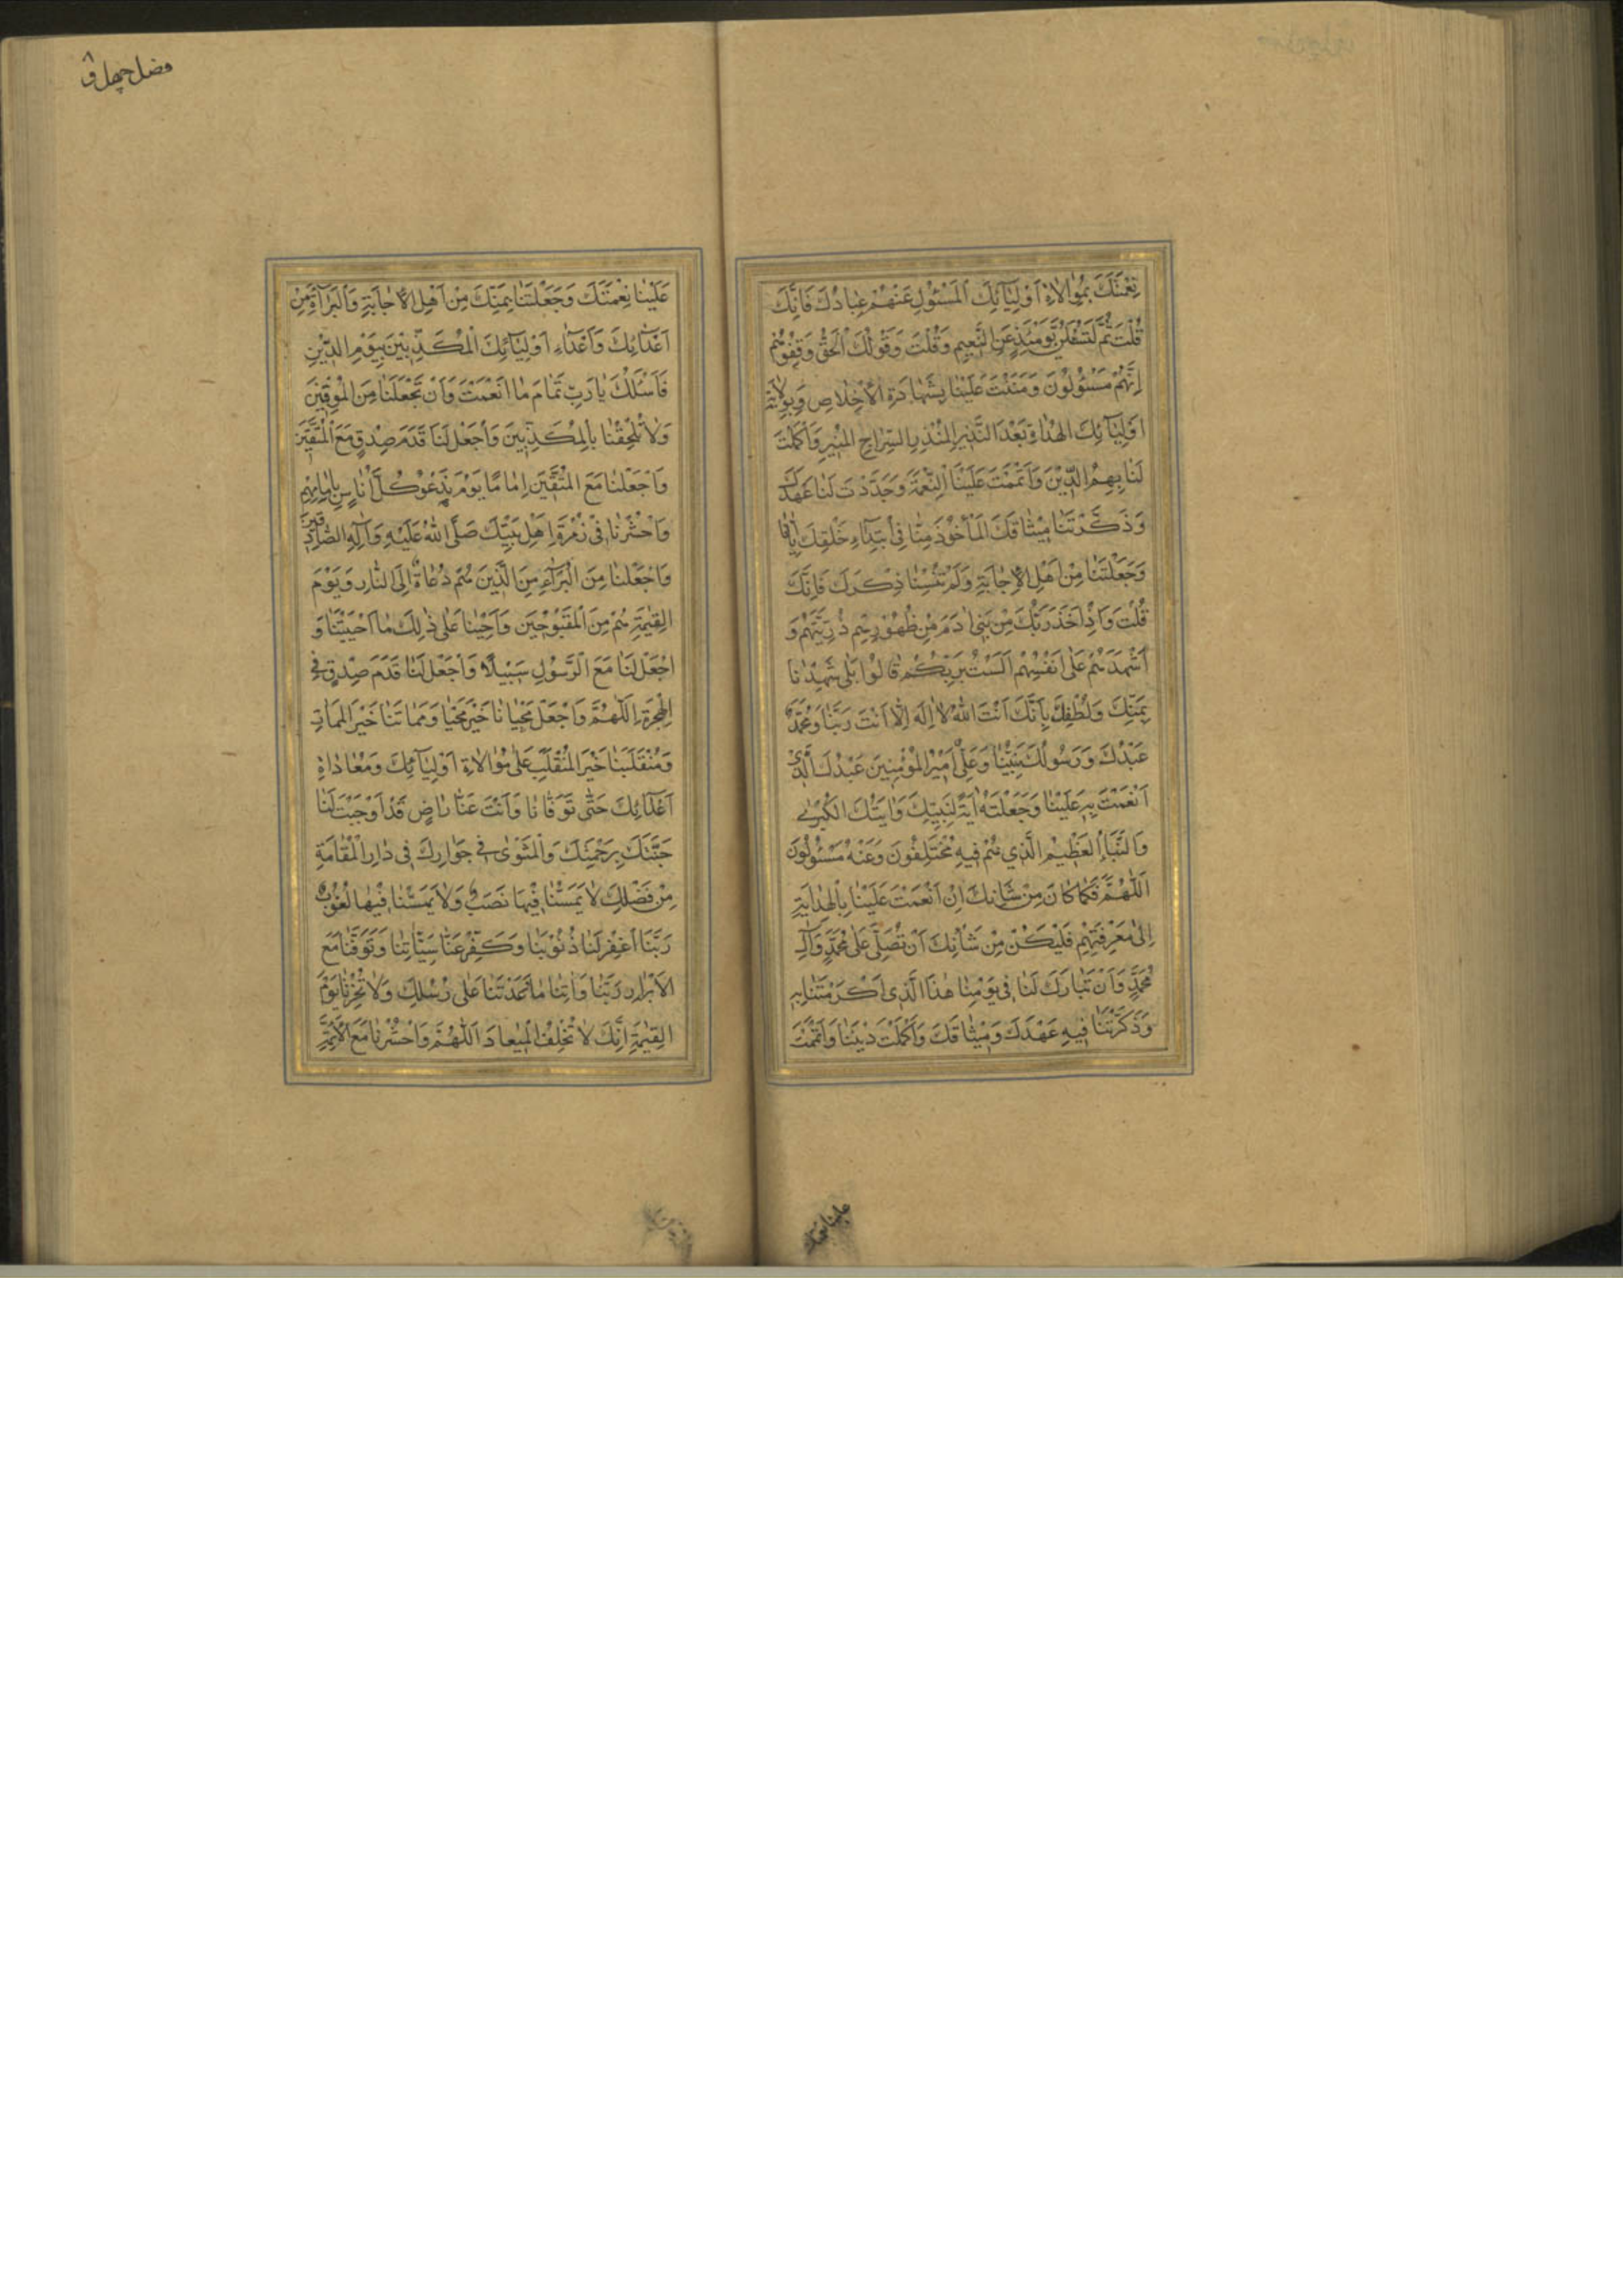 نِعْمَتَكَ بِمُوٰالاٰةِ اَوْلِيٰآئِكَ الْمَسْئُولِ عَنْهُمْ عِبٰادُكَ فَاِنَّكَ
قُلْتَ ثُمَّ لَتُسْئَلُنَّ يَوْمَئِذٍ عَنِ النَّعِيمِ وَقُلْتَ وَقَوْلُكَ الْحَقُّ وَقِفُوهُمْ
اِنَّهُمْ مَسْئُولُونَ وَمَنَنْتَ عَلَيْنٰا بِشَهٰادَةِ الْاِخْلاٰصِ وَبِوِلاٰيَةِ
اَوْلِيٰآئِكَ الْهُدٰاةِ بَعْدَ النَّذِيرِ الْمُنْذِرِ السِّرٰاجِ الْمُنِيرِ وَاَكْمَلْتَ
لَنٰا بِهِمُ الدِّيْنَ وَاَتْمَمْتَ عَلَيْنَا النِّعْمَةَ وَجَدَّدْتَ لَنٰا عَهْدَكَ
وَذَكَّرْتَنٰا مِيْثٰاقَكَ الْمَأْخُوْذَ مِنّٰا فِى ابْتِدٰآءِ خَلْقِكَ اِيّٰانٰا
وَجَعَلْتَنٰا مِنْ اَهْلِ الْاِجٰابَةِ وَلَمْ تُنْسِنٰا ذِكْرَكَ فَاِنَّكَ
قُلْتَ وَاِذْ اَخَذَ رَبُّكَ مِنْ بَنِىٓ اٰدَمَ مِنْ ظُهُوْرِهِمْ ذُرِّيَّتَهُمْ وَ
اَشْهَدَهُمْ عَلٰى اَنْفُسِهِمْ اَلَسْتُ بِرَبِّكُمْ قٰالُوْا بَلٰى شَهِدْنٰا
بِمَنِّكَ وَلُطْفِكَ بِاَنَّكَ اَنْتَ اللّٰهُ لاٰ اِلٰهَ اِلاّٰ اَنْتَ رَبُّنٰا وَمُحَمَّدٌ
عَبْدُكَ وَرَسُولُكَ نَبِيُّنٰا وَعَلِىٌّ اَمِيْرُ الْمُؤْمِنِينَ عَبْدُكَ الَّذِى
اَنْعَمْتَ بِهِ عَلَيْنٰا وَجَعَلْتَهُ اٰيَةً لِنَبِيِّكَ وَاٰيَتَكَ الْكُبْرٰى
وَالنَّبَأَ الْعَظِيْمِ الَّذِي هُمْ فِيهِ مُخْتَلِفُونَ وَعَنْهُ مَسْئُولُونَ
اَللّٰهُمَّ فَكَمٰا كٰانَ مِنْ شَأنِكَ اِنْ اَنْعَمْتَ عَلَيْنٰا بِالْهِدٰايَةِ
اِلىٰ مَعْرِفَتِهِمْ فَلْيَكُنْ مِنْ شَأْنِكَ اَنْ تُصَلِّىَ عَلٰى مُحَمَّدٍ وَآلِ
مُحَمَّدٍ وَاَنْ تُبٰارِكَ لَنٰا فِى يَوْمِنٰا هٰذَا الَّذِى اَكْرَمْتَنٰا بِهِ
وَذَكَّرْتَنٰا فِيهِ عَهْدَكَ وَمِيْثٰاقَكَ وَاَكْمَلْتَ دِيْنَنٰا وَاَتْمَمْتَ
علينا نعمتك
فصل چهل
عَلَيْنٰا نِعْمَتَكَ وَجَعَلْتَنٰا بِمَنِّكَ مِنْ اَهْلِ الْاِجٰابَةِ وَالْبَرٰآءَةِ مِنْ
اَعْدٰآئِكَ وَاَعْدٰآءِ اَوْلِيٰآئِكَ الْمُكَذِّبِيْنَ بِيَوْمِ الدِّيْنِ
فَاَسْئَلُكَ يٰا رَبِّ تَمٰامَ مٰا اَنْعَمْتَ وَاَنْ تَجْعَلَنٰا مِنَ الْمُوْقِنِيْنَ
وَلاٰ تُلْحِقْنٰا بِالْمُكَذِّبِينَ وَاجْعَلْ لَنٰا قَدَمَ صِدْقٍ مَعَ الْمُتَّقِيْنَ
وَاجْعَلْنٰا مَعَ الْمُتَّقِيْنَ اِمٰامًا يَوْمَ نَدْعُوْ كُلَّ اُنٰاسٍ بِاِمٰامِهِمْ
وَاحْشُرْنٰا فِىْ زُمْرَةِ اَهْلِ بَيْتِ نَبِيِّكَ صَلَّى اللّٰهُ عَلَيْهِ وَآلِهِ الصّٰادِقِيْنَ
وَاجْعَلْنٰا مِنَ الْبُرَآءِ مِنَ الَّذِينَ هُمْ دُعٰاةٌ اِلَى النّٰارِ وَيَوْمَ
الْقِيٰمَةِ هُمْ مِنَ الْمَقْبُوْحِيْنَ وَاَحْيِنٰا عَلٰى ذٰلِكَ مٰا اَحْيَيْتَنٰا وَ
اجْعَلْ لَنٰا مَعَ الرَّسُوْلِ سَبِيْلًا وَاجْعَلْ لَنٰا قَدَمَ صِدْقٍ فِى
الْهِجْرَةِ اَللّٰهُمَّ وَاجْعَلْ مَحْيٰانٰا خَيْرَ مَحْيٰا وَمَمٰاتَنٰا خَيْرَ الْمَمٰاتِ
وَمُنْقَلَبَنٰا خَيْرَ الْمُنْقَلَبِ عَلٰى مُوٰالاٰةِ اَوْلِيٰآئِكَ وَمُعٰادٰاةِ
اَعْدٰآئِكَ حَتّٰى تَوَفّٰانٰا وَاَنْتَ عَنّٰا رٰاضٍ قَدْ اَوْجَبْتَ لَنٰا
جَنَّتَكَ بِرَحْمَتِكَ وَالْمَثْوٰى فِى جِوٰارِكَ فِى دٰارِ الْمُقٰامَةِ
مِنْ فَضْلِكَ لاٰ يَمَسُّنٰا فِيْهٰا نَصَبٌ وَلاٰ يَمَسُّنٰا فِيْهٰا لُغُوْبٌ
رَبَّنَا اغْفِرْ لَنٰا ذُنُوْبَنٰا وَكَفِّرْ عَنّٰا سَيِّئٰاتِنٰا وَتَوَفَّنٰا مَعَ
الْاَبْرٰارِ رَبَّنٰا وَاٰتِنٰا مٰا وَعَدْتَنٰا عَلٰى رُسُلِكَ وَلاٰ تُخْزِنٰا يَوْمَ
الْقِيٰمَةِ اِنَّكَ لاٰ تُخْلِفُ الْمِيْعٰادَ اَللّٰهُمَّ وَاحْشُرْنٰا مَعَ الْاَئِمَّةِ